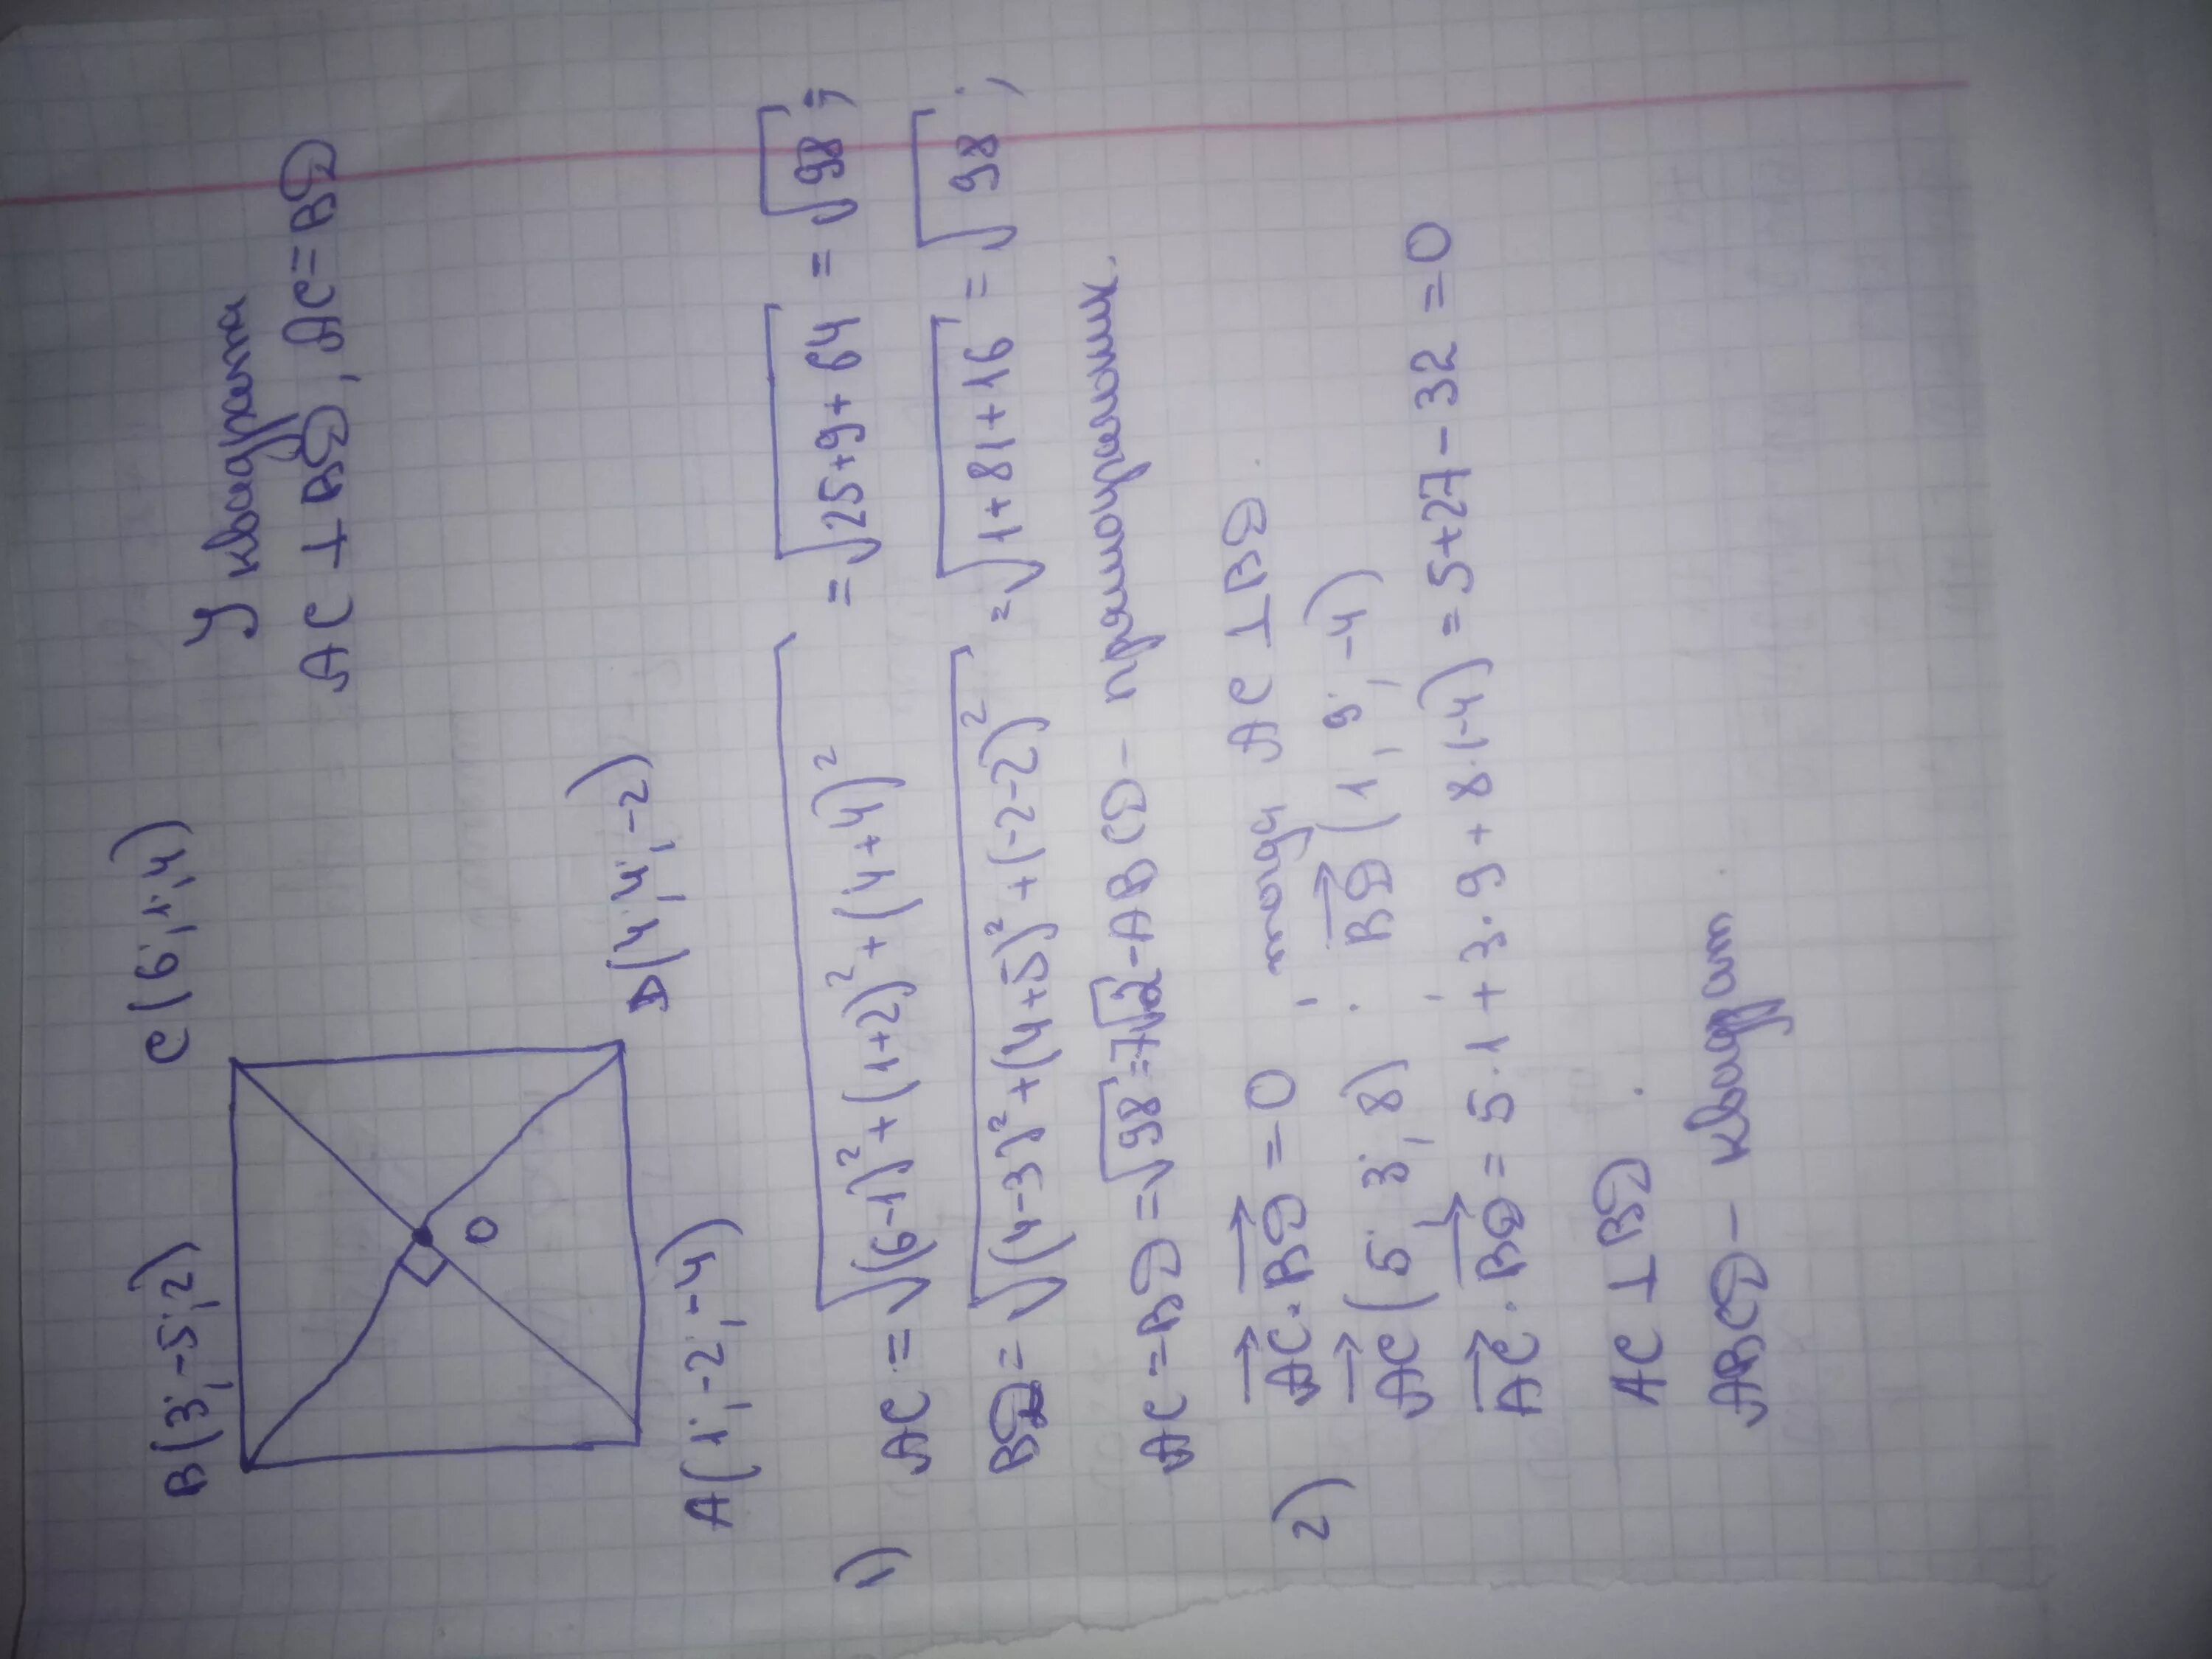 B(3;-5;2) C(6;1;4) У квадрата
AC ⊥ BD, AC=BD
O
A(1;-2;-4) D(4;4;-2)
1) AC = √(6-1)²+(1+2)²+(4+4)² = √25+9+64 = √98;
BD = √(4-3)²+(4+5)²+(-2-2)² = √1+81+16 = √98;
AC = BD = √98 = 7√2 - ABCD - прямоугольник.
2) AC · BD = 0; тогда AC ⊥ BD.
AC (5; 3; 8); BD (1; 9; -4)
AC · BD = 5·1+3·9+8·(-4) = 5+27-32 = 0
AC ⊥ BD.
ABCD - квадрат